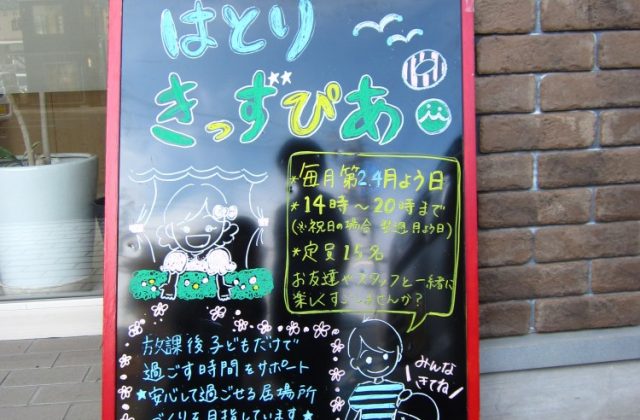 はとり
きっずぴあ
*毎月第2.4月よう日
*14時〜20時まで
(※祝日の場合 翌週月よう日)
*定員15名
お友達やスタッフと一緒に
楽しくすごしませんか?
放課後子どもだけで
過ごす時間をサポート
★安心して過ごせる居場所
づくりを目指しています★
みんな
きてね